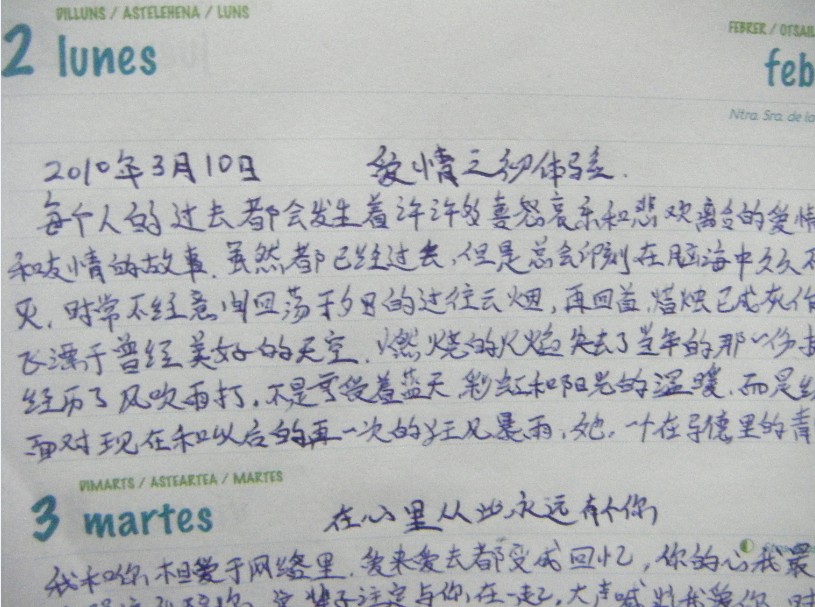 DILLUNS / ASTELEHENA / LUNS
2 lunes
FEBRER / OTSAIL
feb
Ntra. Sra. de la
2010年3月10日 爱情之初体验.
每个人的过去都会发生着许许多多喜怒哀乐和悲欢离合的爱情
和友情的故事. 虽然都已经过去,但是总会印刻在脑海中久久不
灭. 时常不经意间回荡于夕日的过往云烟,再回首,蜡烛已成灰作
飞漂于曾经美好的天空. 燃烧的火焰失去了当年的那一份
经历了风吹雨打,不是享受着蓝天彩虹和阳光的温暖.而是
面对现在和以后的再一次的狂风暴雨,她,一个在导德里的青
DIMARTS / ASTEARTEA / MARTES
3 martes
在心里从此永远有个你
我和你相爱于网络里. 爱来爱去都变成回忆,你的心我最
注定与你在一起,大声喊出我爱你